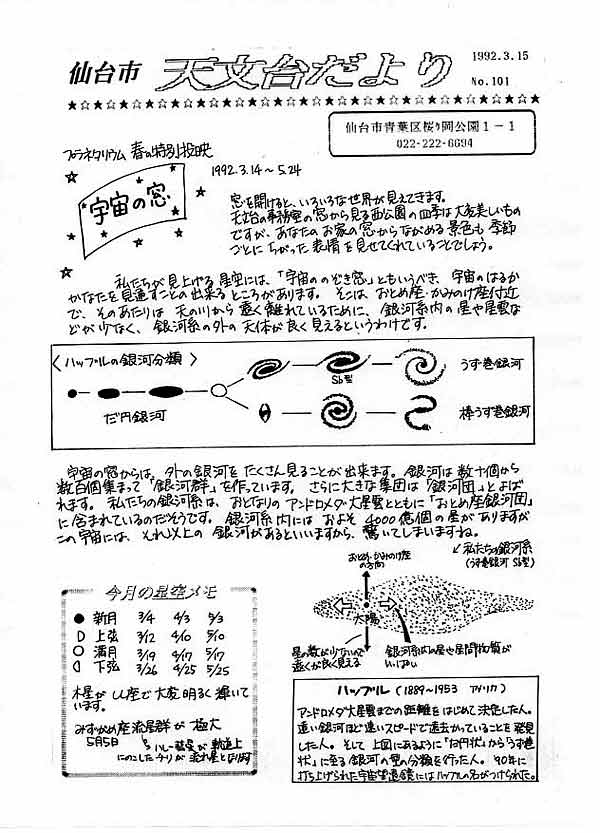 仙台市 天文台だより 1992.3.15
No.101
★☆★☆★☆★☆★☆★☆★☆★☆★☆★☆★☆★☆★☆★☆★☆★☆★☆★☆★☆★☆
仙台市青葉区桜ヶ岡公園1-1
022-222-6694
プラネタリウム 春の特別投映
1992.3.14〜5.24
宇宙の窓
窓を開けると、いろいろな世界が見えてきます。
天文台の事務室の窓から見る西公園の四季は大変美しいもの
ですが、あなたのお家の窓からながめる景色も 季節
ごとにちがった表情を見せてくれていることでしょう。
私たちが見上げる星空には、「宇宙ののぞき窓」ともいうべき、宇宙のはるか
かなたを見通すことの出来るところがあります。そこは おとめ座・かみのけ座付近
で、そのあたりは 天の川から遠く離れているために、銀河系内の星や星雲な
どが少なく、銀河系の外の天体が良く見えるというわけです。
〈ハッブルの銀河分類〉
だ円銀河
Sb型
うず巻銀河
棒うず巻銀河
宇宙の窓からは、外の銀河をたくさん見ることが出来ます。銀河は数十個から
数百個集まって「銀河群」を作っています。さらに大きな集団は「銀河団」とよば
れます。私たちの銀河系は、おとなりのアンドロメダ大星雲とともに「おとめ座銀河団」
に含まれているのだそうです。銀河系内には およそ 4000億個の星がありますが
この宇宙には、それ以上の 銀河があるといいますから、驚いてしまいますね。
おとめ・かみのけ座
の方向
私たちの銀河系
(うず巻銀河 Sb型)
太陽
星の数が少ないので
遠くが良く見える
銀河系内の星や星間物質が
いっぱい
今月の星空メモ
● 新月 3/4 4/3 5/3
D 上弦 3/12 4/10 5/10
○ 満月 3/19 4/17 5/17
下弦 3/26 4/25 5/25
木星が しし座で大変明るく輝いて
います。
みずがめ座流星群が 極大
5月5日
ハレー彗星が 軌道上
にのこしたチリが 流れ星となります
ハッブル (1889〜1953 アメリカ)
アンドロメダ大星雲までの距離をはじめて決定した人。
遠い銀河ほど速いスピードで遠去かっていることを発見
した人。そして 上図にあるように「だ円状」から「うず巻
状」に至る銀河の型の分類を行った人。90年に
打ち上げられた宇宙望遠鏡にはハッブルの名がつけられた。